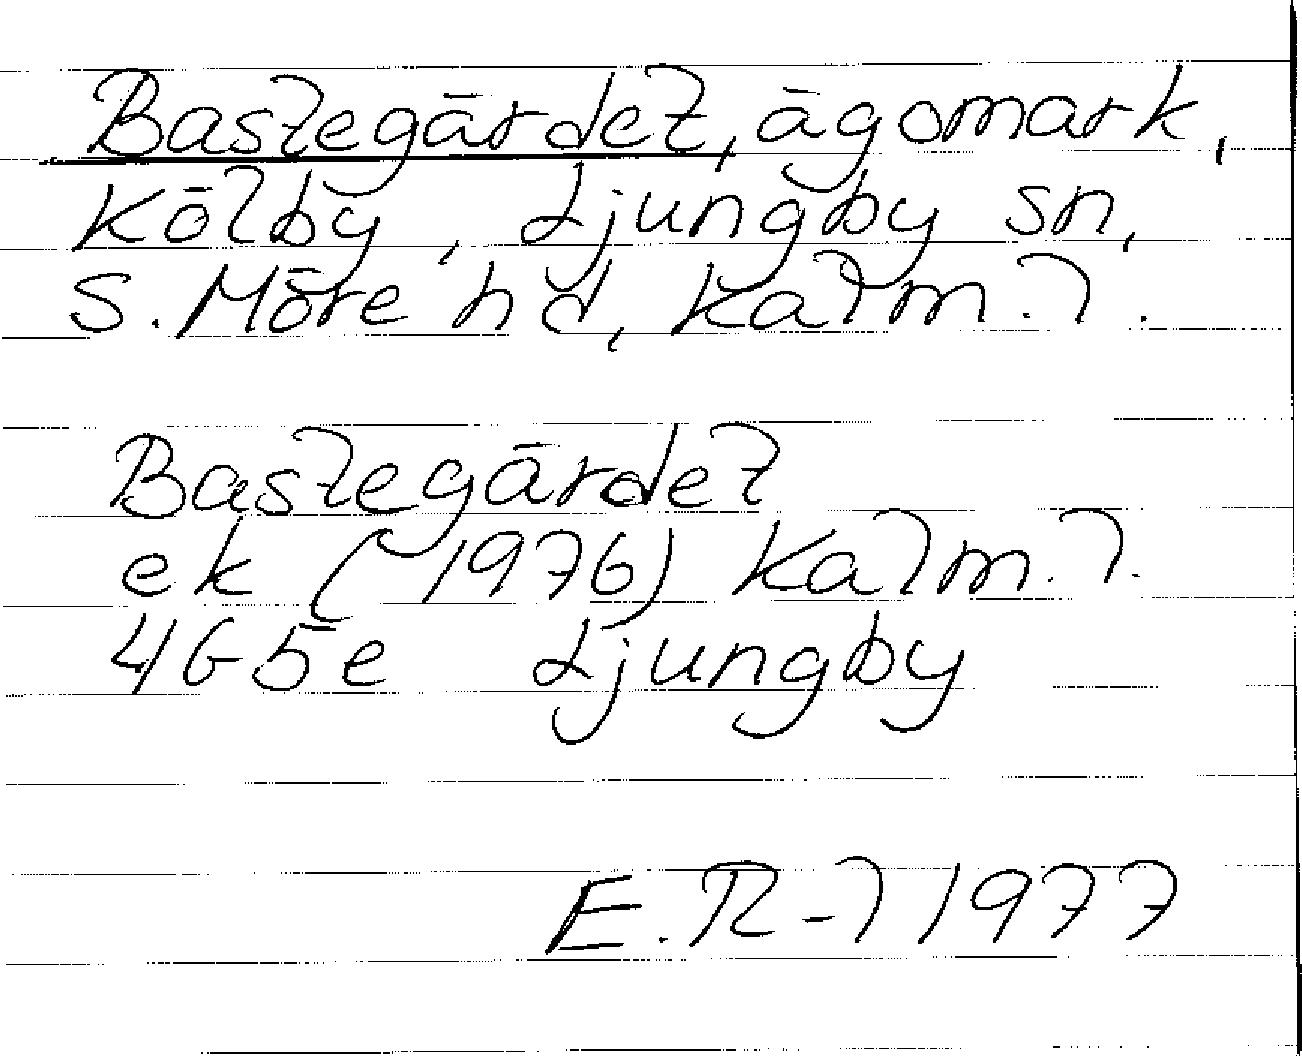 Bastegärdet, ägomark,
Kölby, Ljungby sn,
S. Möre hd, Kalm. l.
Bastegärdet
ek (1976) Kalm. l.
4G5e Ljungby
E.R-l 1977